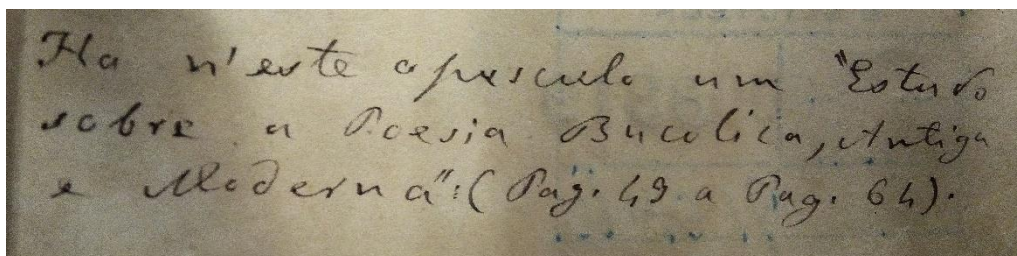 Ha n'este opusculo um "Estudo
sobre a Poesia Bucolica, Antiga
e Moderna": (Pag. 49 a Pag. 64).